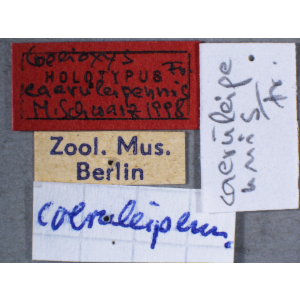 Coelioxys
HOLOTYPUS Fr.
caeruleipennis
M. Schwarz 1998
Zool. Mus.
Berlin
coeruleipenn.
caeruleipe
nnis Fr.